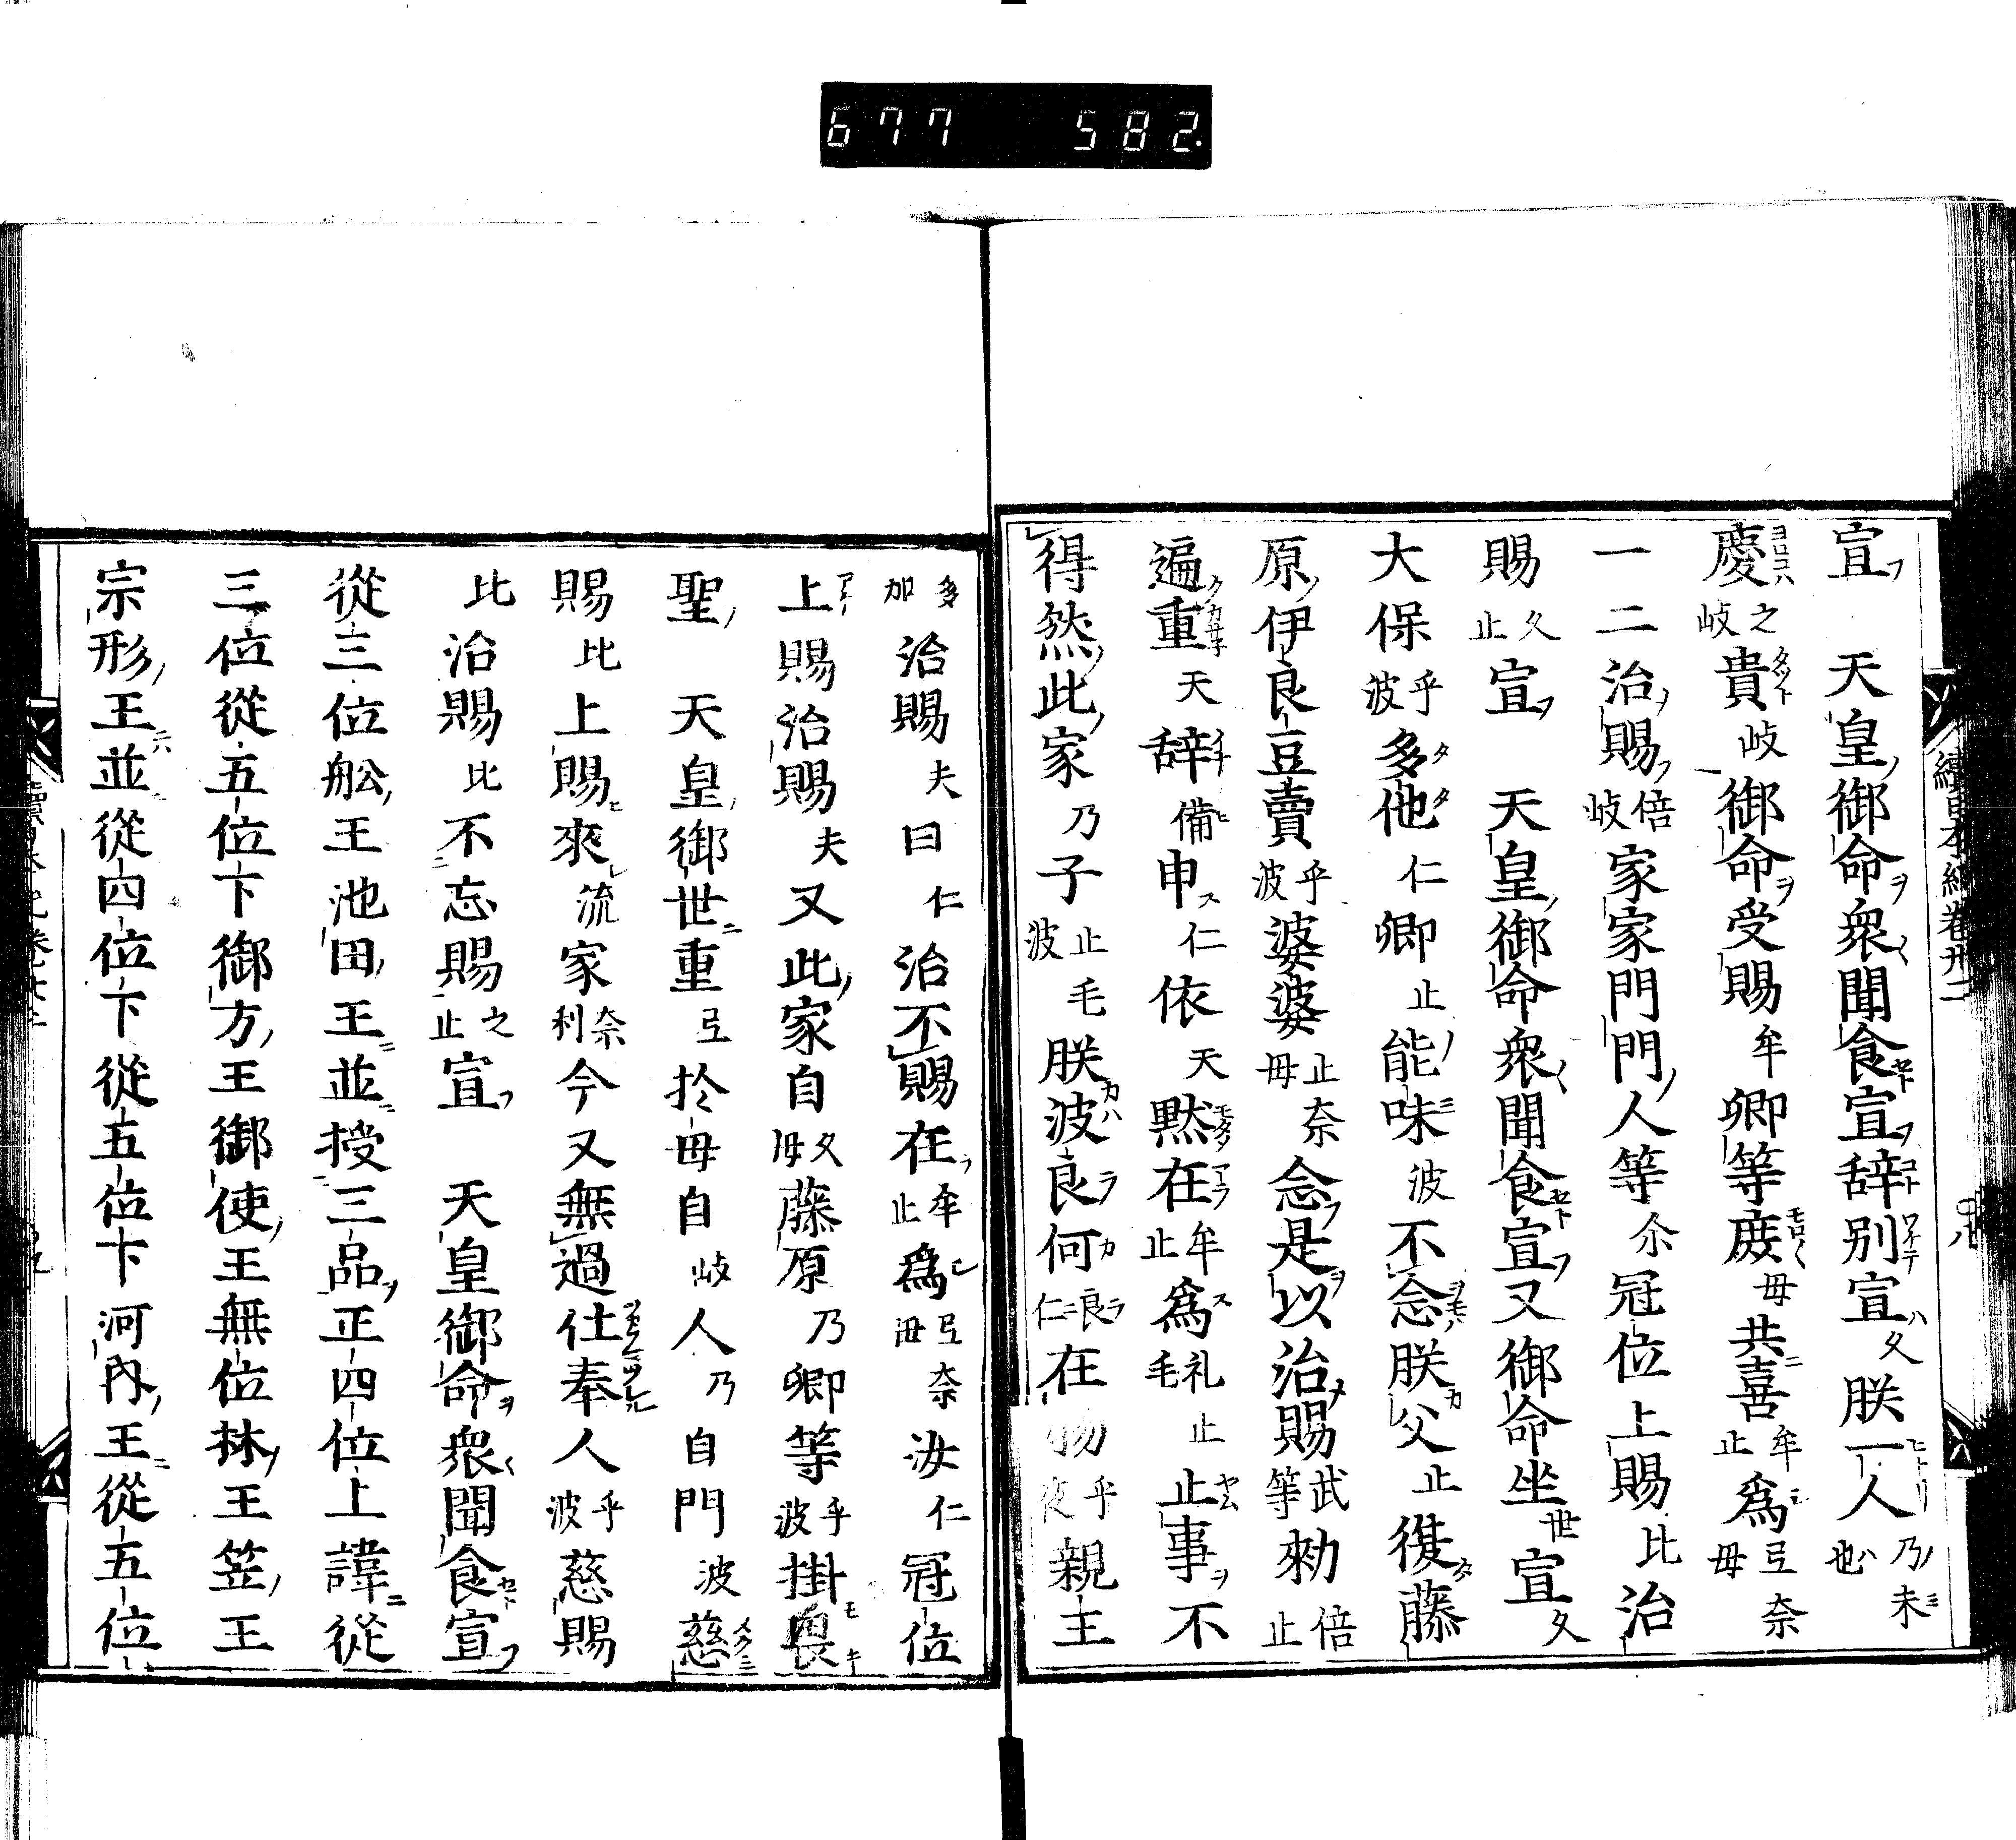 677 582.
續日本紀卷廿二
宣天皇御命衆聞食宣辞別宣久朕一人乃未也
慶之岐貴岐御命受賜牟卿等庻毋共喜牟止爲弖奈毋
一二治賜倍岐家家門門人等尒冠位上賜比治
賜久止宣天皇御命衆聞食宣又御命坐世宣久
大保乎波多他仁卿止能味波不念朕父止復藤
原伊良豆賣乎波婆婆止奈毋念是以治賜武等勅倍止
遍重天辞備申仁依天黙在牟止爲礼止毛止事不
得然此家乃子止毛波朕波良何良仁在物乎夜親王
多加治賜夫日仁治不賜在牟止爲弖奈毋汝仁冠位
上賜治賜夫又此家自久毋藤原乃卿等乎波掛畏
聖天皇御世重弖於毋自岐人乃自門波慈
賜比上賜來流家奈利今又無過仕奉人乎波慈賜
比治賜比不忘賜之止宣天皇御命衆聞食宣
從三位舩王池田王並授三品正四位上諱從
三位從五位下御方王御使王無位林王笠王
宗形王並從四位下從五位下河內王從五位